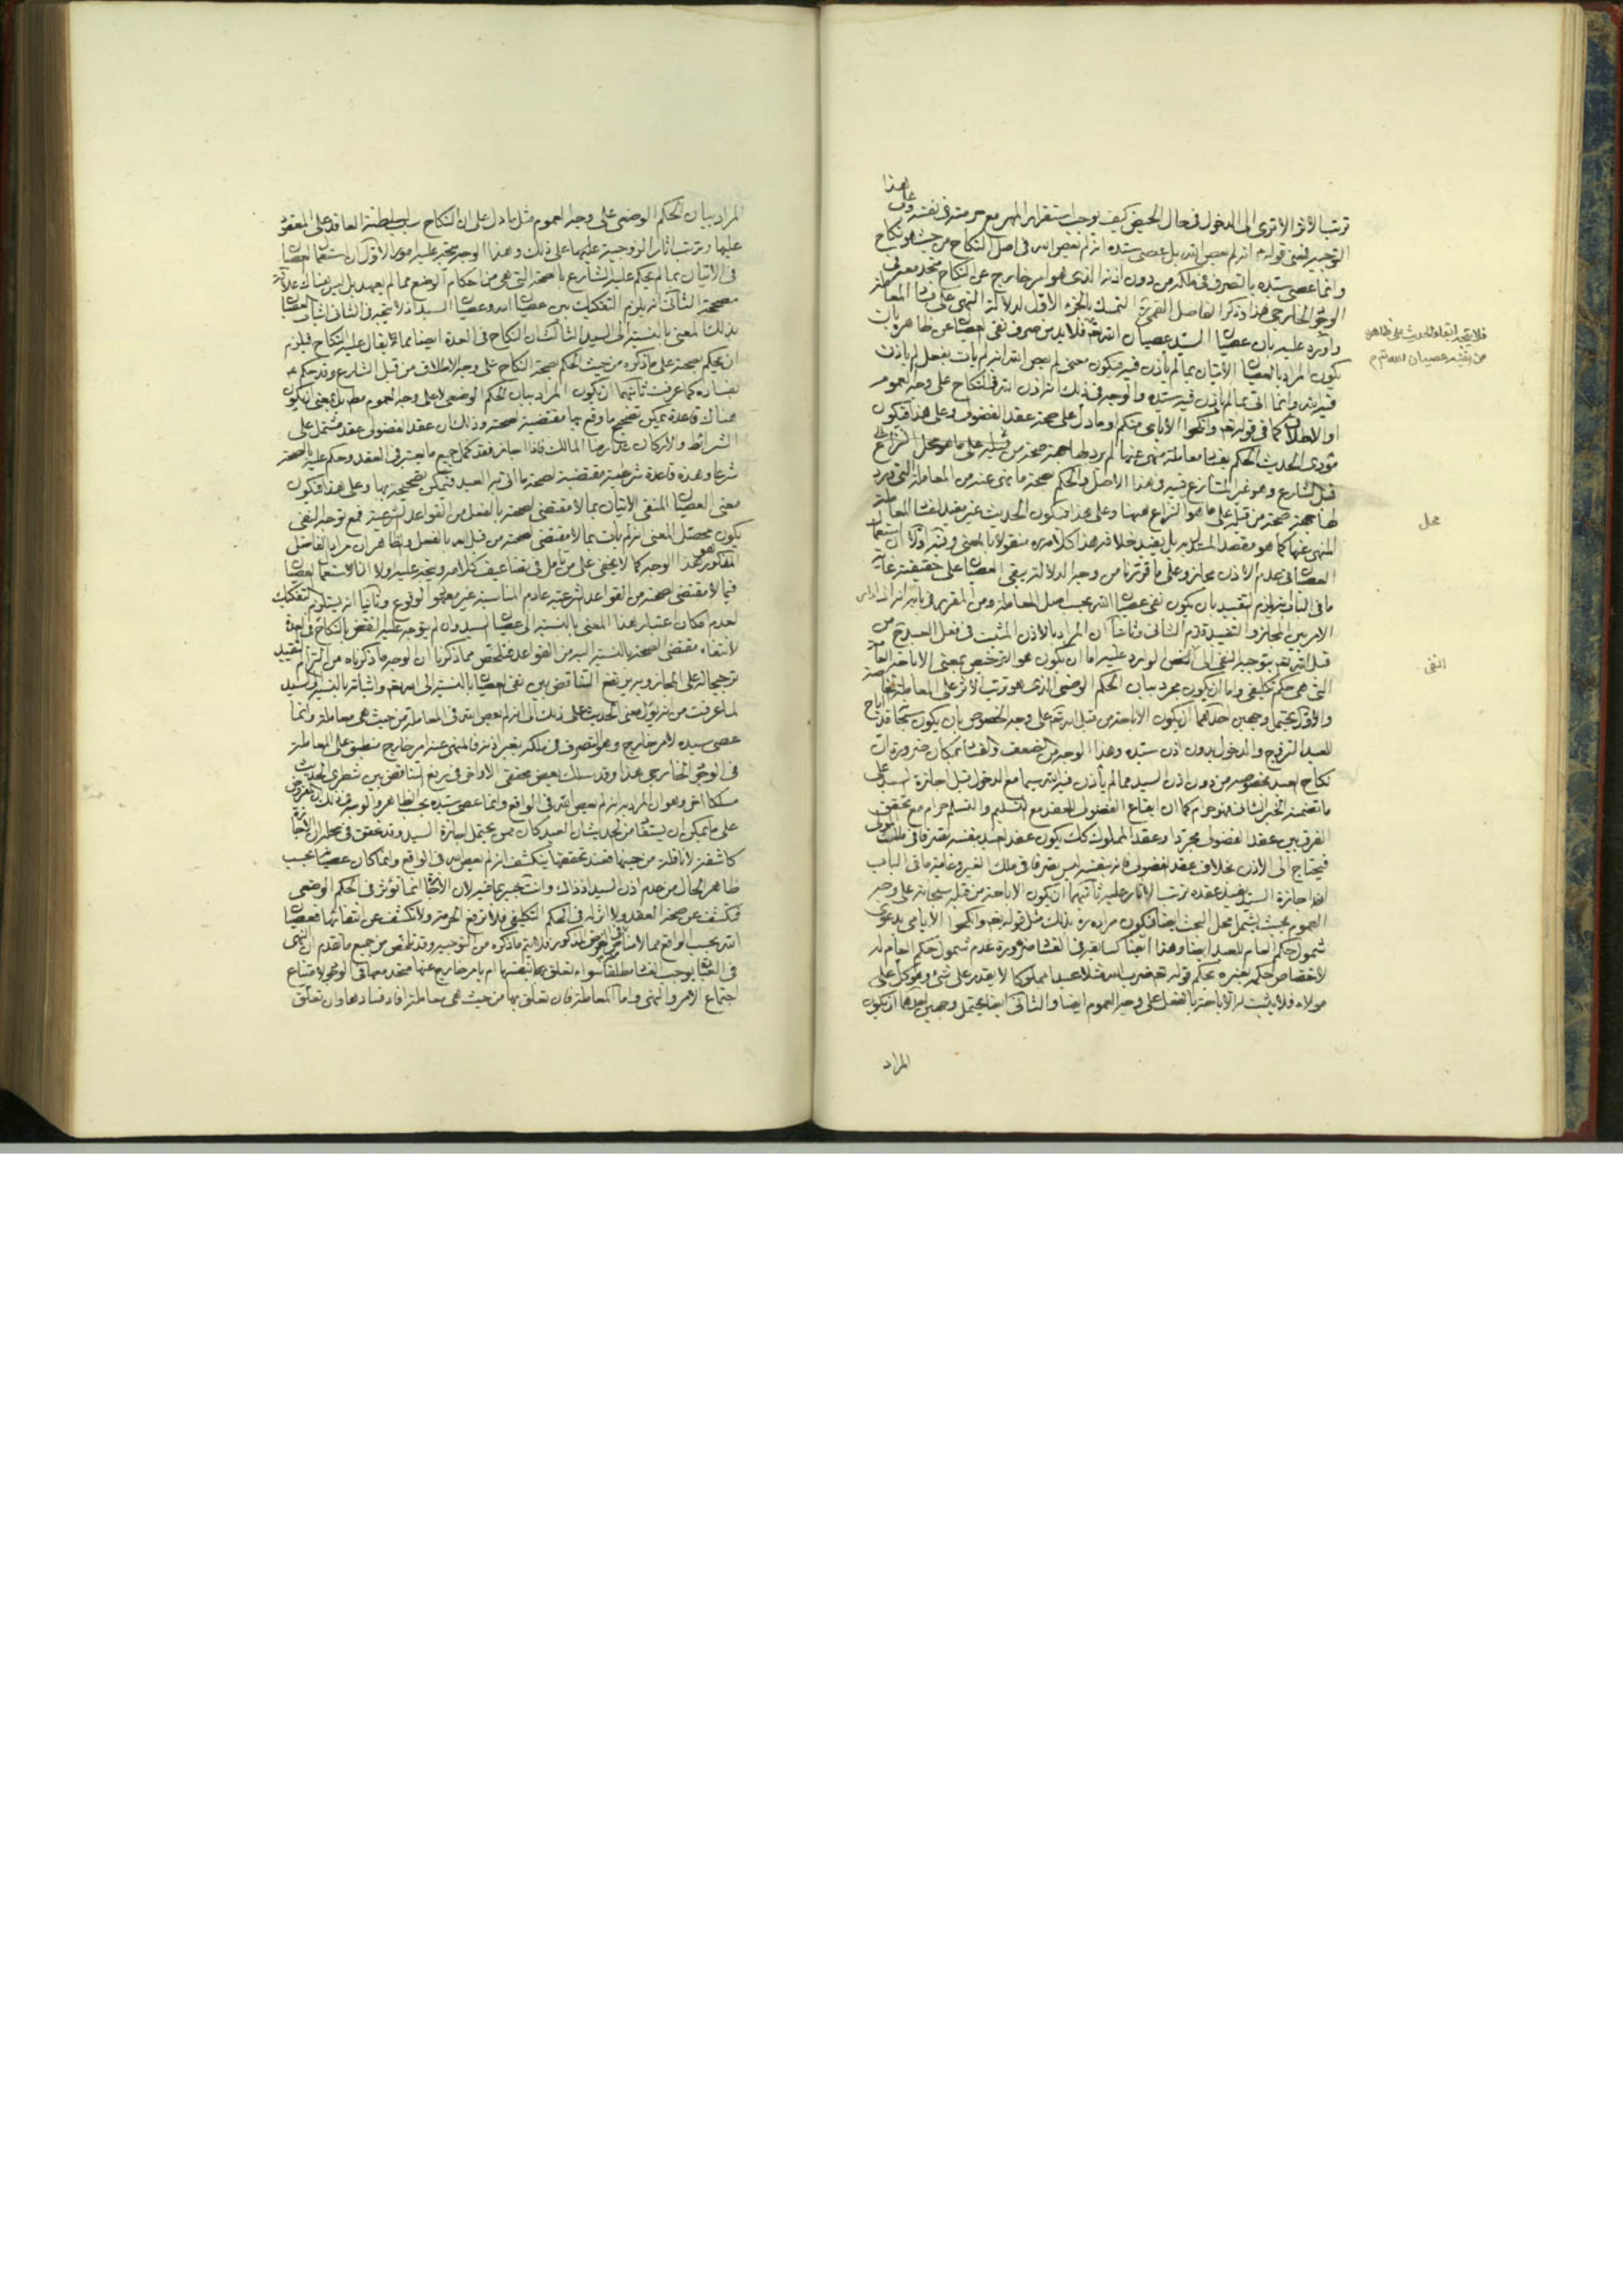 ترتب الاثر الا ترى الى الدخول فى حال الحيض كيف يوجب استقرار المهر مع حرمته فى نفسه وعلى هذا
التوجيه فمعنى قوله انه لم يعص الله بل عصى سيده انه لم يعص الله فى اصل النكاح من حيث هو نكاح
وانما عصى سيده بالتصرف فى ملكه من دون اذنه الذى هو امر خارج عن النكاح متحد معه فى
الوجود الخارجى هذا وذكر الفاضل القمى التمسك بالجزء الاول لدلالة النهى على فساد المعاملة
واورد عليه بان عصيان السيد عصيان الله فلا بد من صرف نفى العصيان عن ظاهره بان
يكون المراد بالعصيان الاتيان بما لم يأذن فيه فيكون معنى لم يعص الله انه لم يات بفعل لم ياذن
فيه الله وانما اتى بما لم ياذن فيه سيده والوجه فى ذلك انه اذن الله فى النكاح على وجه العموم
او الاطلاق كما فى قوله تعالى وانكحوا الايامى منكم او ما دل على صحة عقد الفضولى وعلى هذا فيكون
مؤدى الحديث الحكم بفساد معاملة منهى عنها لم يرد لها جهة صحة من قبله على ما هو محل النزاع
قبل الشارع وهو غير المتنازع فيه وهذا الاصل والحكم بصحة ما نهى عنه من المعاملة التى ورد
لها جهة صحة من قبله على ما هو النزاع ههنا وعلى هذا فيكون الحديث غير مفيد لفساد المعاملة
المنهى عنها كما هو مقصد المستدل به بل يفيد خلافه هذا كلامه منقولا بالمعنى وفيه اولا ان استعمال
العصيان فى عدم الاذن مجاز وعلى ما قررنا من وجه الدلالة يبقى العصيان على حقيقته غاية
ما فى الباب ان يلزم التقييد بان يكون نفى عصيان الله بحسب اصل المعاملة ومن المقرر فى بابه انه اذا دار
الامر بين المجاز والتقييد قدم الثانى وثانيا ان المراد بالاذن المثبت فى فعل العبد من
قبل الله تعالى بتوجيه النفى الى النص الوارد عليه اما ان يكون هو الترخيص بمعنى الاباحة
التى هى حكم تكليفى واما ان يكون مجرد بيان الحكم الوضعى الذى هو ترتب الاثر على المعاملة
والاول يحتمل وجهين احدهما ان يكون الاباحة من قبل الله تعالى على وجه الخصوص بان يكون سبحانه قد اباح
للعبد التزويج والدخول بدون اذن سيده وهذا الوجه من الضعف والفساد بمكان ضرورة ان
نكاح العبد بخصوصه من دون اذن السيد مما لم يأذن فيه الله سيما مع الدخول قبل اجازة السيد على
ما تضمنه الخبر الثانى فهو حرام كما ان ايقاع الفضولى للعقد مع التسليم والتسلم حرام مع تحقق
الفرق بين عقد الفضولى مجردا وعقد المملوك كذلك بكون عقد العبد بنفسه تصرفا فى ملك المولى
فيحتاج الى الاذن بخلاف عقد الفضولى فانه بنفسه ليس تصرفا فى ملك الغير وغاية ما فى الباب
العموم بحيث يشمل محل البحث ايضا فيكون مراده بذلك مثل قوله تعالى وانكحوا الايامى بدعوى
شمول حكم العام للعبد ايضا وهذا ايضا كسابقه فى الفساد ضرورة عدم شمول حكم العام له
لاختصاص حكمه بغيره بحكم قوله تعالى ضرب الله مثلا عبدا مملوكا لا يقدر على شئ وهو كل على
مولاه فلا يثبت له الاباحة بالفعل على وجه العموم ايضا والثانى ايضا يحتمل وجهين احدهما ان يكون
المراد
فلا يتجه ابقاء الحديث على ظاهره
محل
النفى
المراد بيان الحكم الوضعى على وجه العموم مثل ما دل على ان النكاح سبب لسلطنة العاقد على المعقود
عليها وترتب اثار الزوجية عليهما على ذلك وهذا الوجه يتجه عليه امور الاول ان استعمال العصيان
فى الاتيان بما لم يحكم عليه الشارع بالصحة التى هى من احكام الوضع مما لم يعهد بل ليس هناك علاقة
مصححة الثانى انه يلزم التفكيك بين عصيان الله وعصيان السيد اذ لا يتجه فى الثانى اثبات العصيان
بذلك المعنى بالنسبة الى السيد الثالث ان النكاح فى العدة ايضا مما يقال عليه النكاح فيلزم
ان يحكم بصحته على ما ذكره من حيث الحكم بصحة النكاح على وجه الاطلاق من قبل الشارع وقد حكم
بفساده كما عرفت ثانيهما ان يكون المراد بيان الحكم الوضعى لا على وجه العموم مط بل بمعنى ان يكون
هناك قاعدة يمكن تصحيح ما وقع بها مقتضية لصحته وذلك ان عقد الفضولى عقد مشتمل على
الشرائط والاركان عدا رضا المالك فاذا اجاز فقد كمل جميع ما يعتبر فى العقد وحكم عليه بالصحة
شرعا وهذه قاعدة شرعية مقتضية لصحة ما اتى به العبد فيمكن تصحيحه بها وعلى هذا فيكون
معنى العصيان المنفى الاتيان بما لا مقتضى لصحته بالفعل من القواعد الشرعية فمع توجه النفى
يكون محصل المعنى انه لم يات بما لا مقتضى لصحته من قبل الله بالفعل والظاهر ان مراد الفاضل
المذكور هو هذا الوجه كما لا يخفى على من تأمل فى تضاعيف كلامه ويتجه عليه اولا ان استعمال العصيان
فيما لا مقتضى لصحته من القواعد الشرعية عادم المناسبة غير معهود الوقوع وثانيا انه يستلزم التفكيك
لعدم امكان اعتبار هذا المعنى بالنسبة الى عصيان السيد وان لم يتوجه عليه النقض بالنكاح فى العدة
لانتفاء مقتضى الصحة بالنسبة اليه من القواعد فتلخص مما ذكرنا ان الوجه ما ذكرناه من التزام التقييد
ترجيحا له على المجاز وبه يرتفع التناقض بين نفى العصيان بالنسبة الى الله تعالى واثباته بالنسبة الى السيد
لما عرفت من انه يؤل معنى الحديث على ذلك الى انه لم يعص الله فى المعاملة من حيث هى معاملة وانما
عصى سيده لامر خارج وهو التصرف فى ملكه بغير اذنه فالمنهى عنه امر خارج منطبق على المعاملة
فى الوجود الخارجى هذا وقد سلك بعض محققى الاواخر فى رفع التناقض بين شطرى الحديث
مسلكا اخر وهو ان المراد انه لم يعص الله فى الواقع وانما عصى سيده بحسب الظاهر
على ما يمكن ان يستفاد من الحديث ان العبد كان ممن يحتمل اجازة السيد وقد تحقق فى محله ان الاجازة
كاشفة لا ناقلة من حينها فعند تحققها ينكشف انه لم يعص الله فى الواقع وانما كان عصيانا بحسب
ظاهر الحال من عدم اذن السيد اذ ذاك وانت خبير بما فيه لان الاجازة انما تؤثر فى الحكم الوضعى
فتكشف عن صحة العقد ولا اثر له فى الحكم التكليفى فلا ترفع الحرمة ولا تكشف عن انتفائها فعصيان
فى العبادات يوجب الفساد مطلقا سواء تعلق بها بنفسها ام بامر خارج عنها متحد معها فى الوجود لامتناع
اجتماع الامر والنهى واما المعاملة فان تعلق بها من حيث هى معاملة افاد فسادها وان تعلق